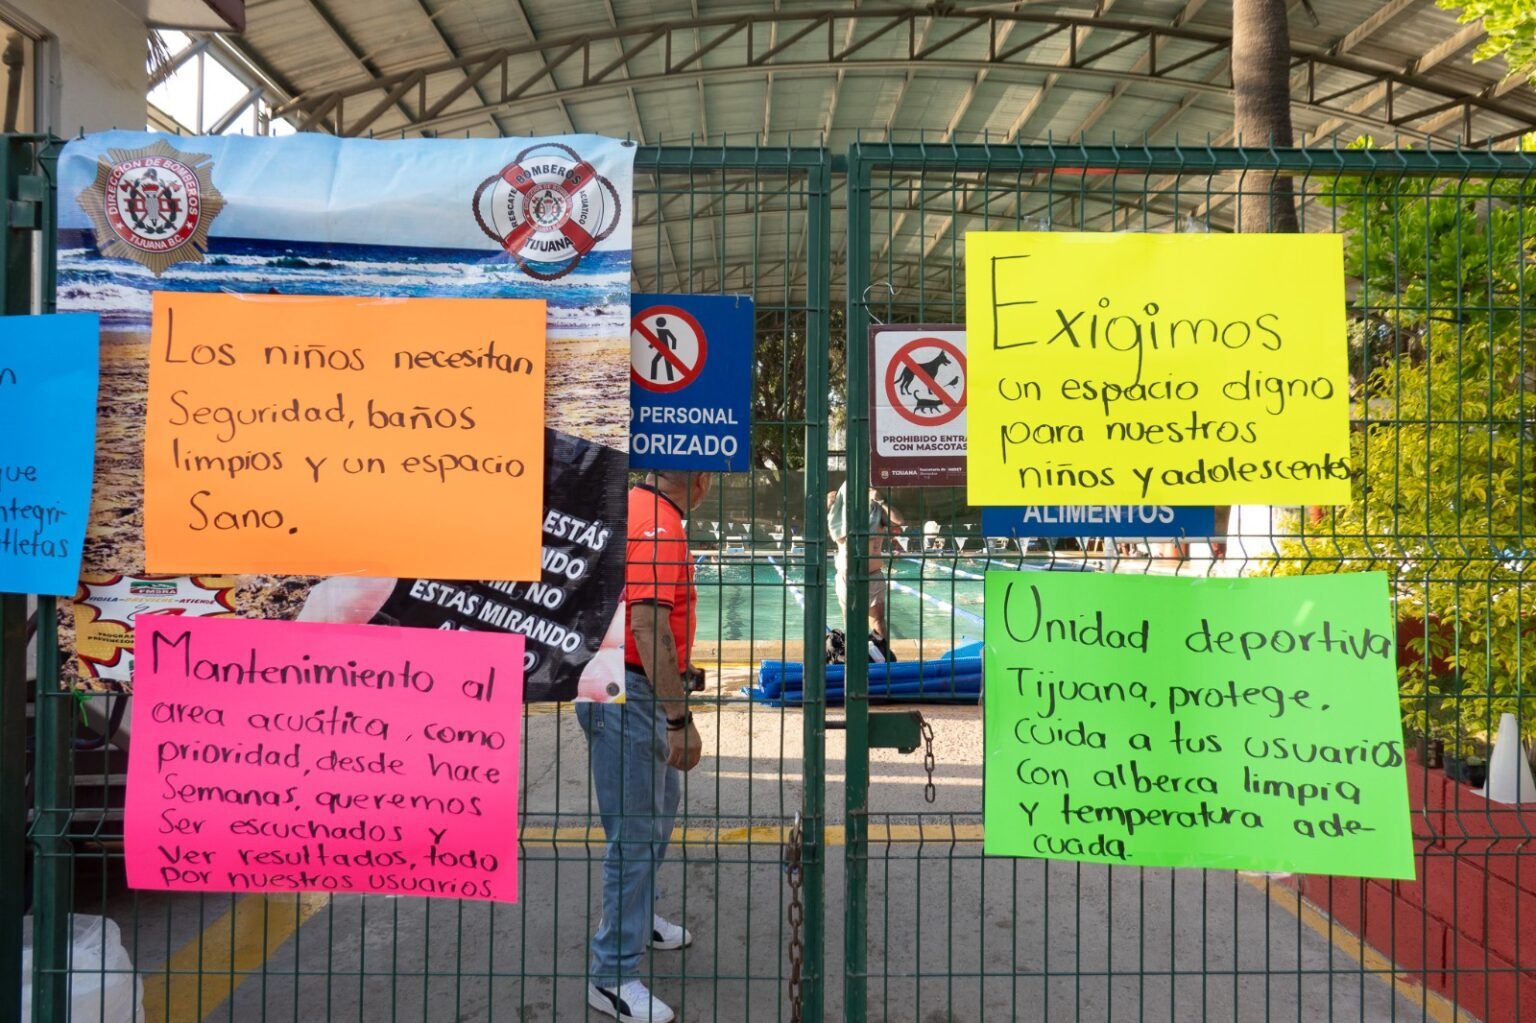 DIRECCIÓN DE BOMBEROS
TIJUANA B.C.
BOMBEROS
RESCATE
ACUÁTICO
TIJUANA
Los niños necesitan
Seguridad, baños
limpios y un espacio
Sano.
que
ntegri-
tletas
PERSONAL
TORIZADO
PROHIBIDO ENTRA
CON MASCOTAS
TIJUANA
Exigimos
un espacio digno
para nuestros
niños y adolescentes
ALIMENTOS
ESTÁS
NDO
MI, NO
ESTÁS MIRANDO
VIGILA-PREVIENE-ATIENDE
Mantenimiento al
area acuática, como
prioridad, desde hace
Semanas, queremos
Ser escuchados y
Ver resultados, todo
por nuestros usuarios.
Unidad deportiva
Tijuana, protege,
cuida a tus usuarios
Con alberca limpia
y temperatura ade-
cuada.